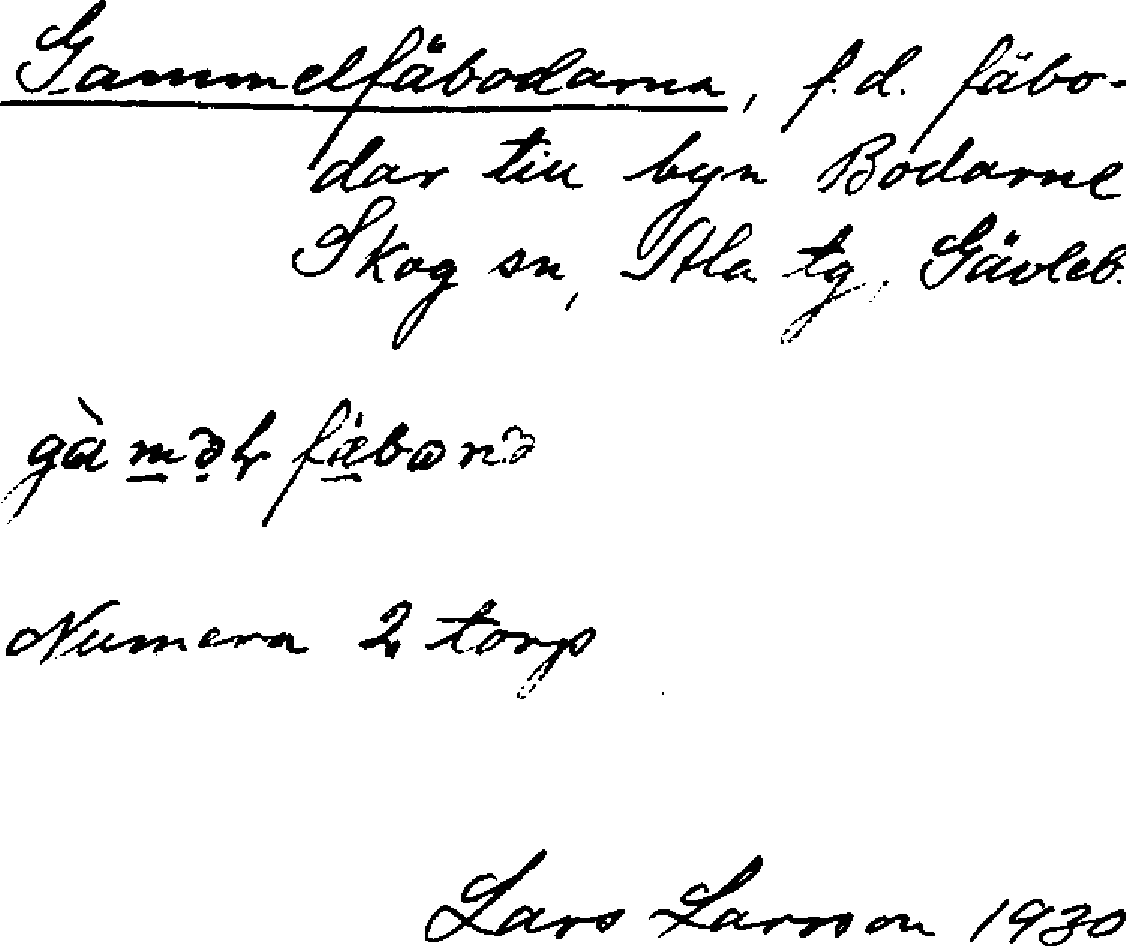 Gammelfäbodarna, f.d. fäbo-
dar till byn Bodarne
Skog sn, Ala tg, Gävleb.
gàməɫ fæ̀bωnə
Numera 2 torp
Lars Larsson 1930